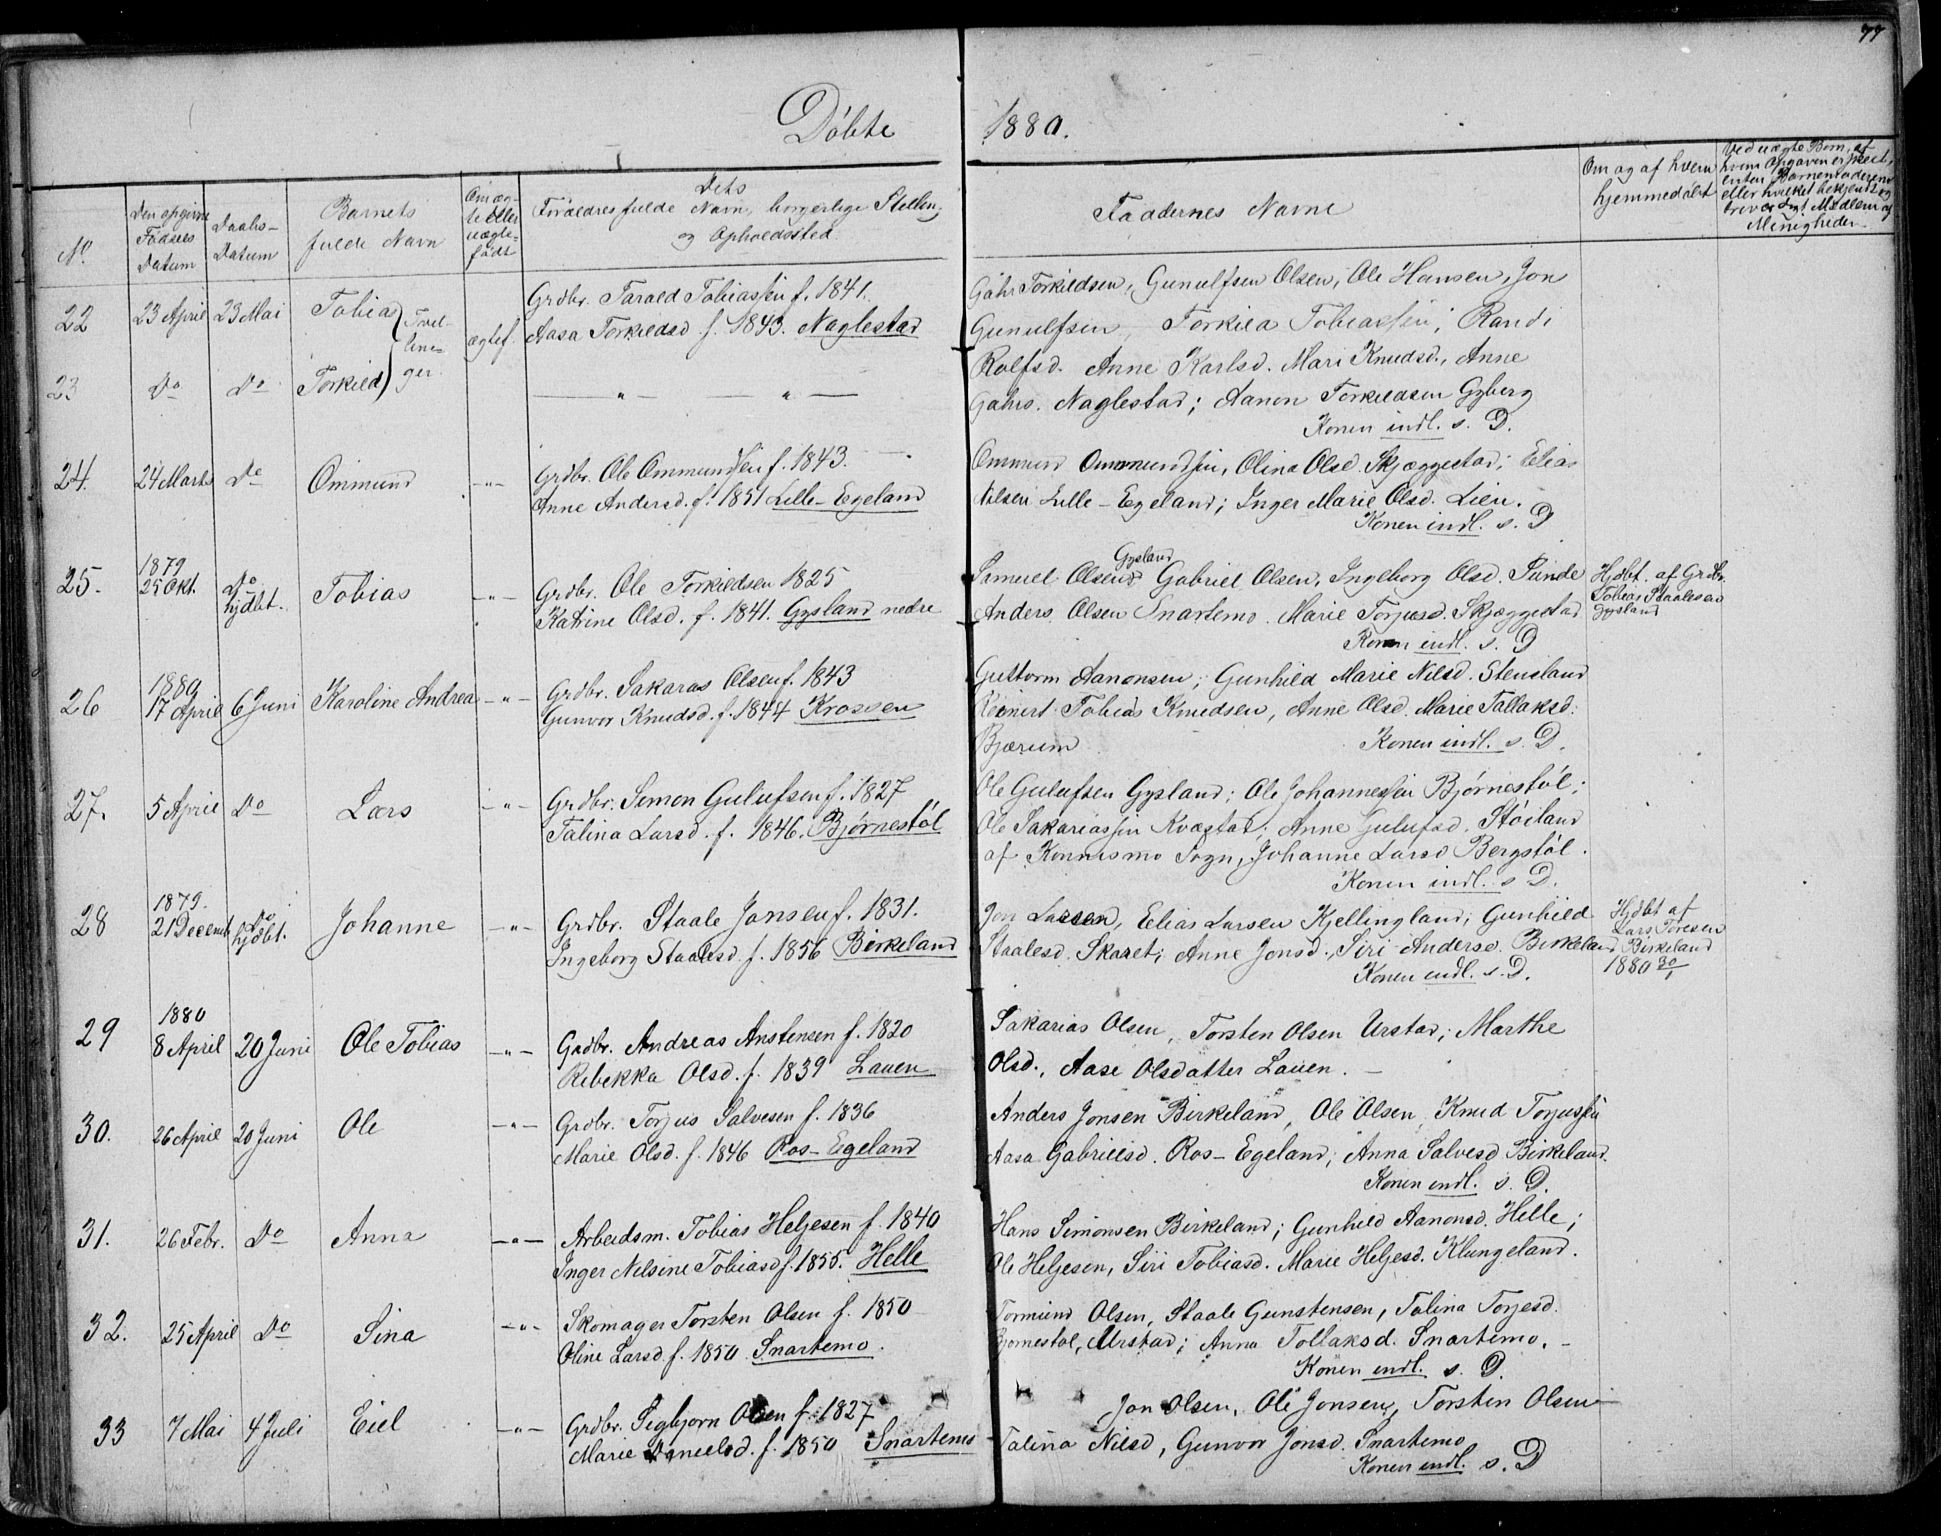 77
Døbte 1880.
No.
Den opgivne Fødsels Datum
Daabs-Datum
Barnets fulde Navn
Om ægte eller uægte født
Dets Forældres fulde Navn, borgerlige Stilling og Opholdssted
Faddernes Navne
Om og af hvem hjemmedøbt
Ved uægte Børn, af hvem Opgaven er skeet,
22 23 April 23 Mai Tobias Tvillinger ægtef. Grdbr. Tarald Tobiassen f. 1841.
Aasa Torkildsd f. 1843. Naglestad
23 Do Do Torkild " "
Gahr Torkildsen, Gunulfsen Olsen, Ole Hansen, Jon
Gunulfsen, Torkild Tobiassen; Randi
Rolfsd. Anne Karlsd. Mari Knudsd., Anne
Gahrs. Naglestad; Aanon Torkildsen Gyberg
Konen indl. s. D.
24. 24 Marts Do Ommund -"- Grdbr. Ole Ommundsen f. 1843.
Anne Andersd. f. 1851 Lille-Egeland
Ommund Ommundsen, Olina Olsd. Skjæggestad; Elias
Nilsen Lille-Egeland; Inger Marie Olsd. Lien.
Konen indl. s. D
25. 1879 25 Okt. Do hjdbt. Tobias -"- Grdbr. Ole Torkildsen 1825
Katrine Olsd. f. 1841. Gysland nedre
Gysland
Samuel Olsen Gabriel Olsen, Ingeborg Olsd. Sunde
Anders Olsen Snartemo. Marie Torjusd. Skjæggestad
Konen indl. s. D
Hjdbt. af Grdbr.
Tobias Staalesen
Gysland
26 1880 17 April 6 Juni Karoline Andrea -"- Grdbr. Sakarias Olsen f. 1843
Gunvor Knudsd. f. 1844 Krossen
Guttorm Aanonsen; Gunhild Marie Nilsd. Stensland
Reinert Tobias Knudsen, Anne Olsd. Marie Tallaksd.
Bjærum Konen indl. s. D.
27. 5 April Do Lars -"- Grdbr. Simon Gulufsen f. 1827
Talina Larsd. f. 1846. Bjørnestøl
Ole Gulufsen Gysland; Ole Johannessen Bjørnestøl;
Ole Sakariassen Kvægstad; Anne Gulufsd. Støiland
af Konnismo Sogn, Johanne Larsd Bergstøl.
Konen indl. s D.
28 1879. 21 Decemb. Do hjdbt. Johanne -"- Grdbr. Staale Jonsen f. 1831.
Ingeborg Staalesd. f. 1856 Birkeland
Jon Larsen, Elias Larsen Kjellingland; Gunhild
Staalesd. Skaret; Anne Jonsd., Siri Andersd. Birkeland
Konen indl. s. D.
Hjdbt af
Lars Toresen
Birkeland
1880 30/1
29 1880 8 April 20 Juni Ole Tobias -"- Grdbr. Andreas Anstensen f. 1820
Rebekka Olsd. f. 1839 Lauen
Sakarias Olsen, Torsten Olsen Urstad; Marthe
Olsd., Aase Olsdatter Lauen. -
30. 26 April 20 Juni Ole -"- Grdbr. Torjus Salvesen f. 1836
Marie Olsd. f. 1846 Ros-Egeland
Anders Jonsen Birkeland, Ole Olsen, Knud Torjussen
Aasa Gabrielsd. Ros-Egeland; Anna Salvesd Birkeland.
Konen indl. s. D.
31. 26 Febr. Do Anna -"- Arbeidsm. Tobias Heljesen f. 1840
Inger Nilsine Tobiasd f. 1855. Helle
Hans Simonsen Birkeland; Gunhild Aanonsd. Helle;
Ole Heljesen, Siri Tobiasd. Marie Heljesd. Klungeland.
32. 25 April Do Sina -"- Skomager Torsten Olsen f. 1850
Oline Larsd. f. 1850. Snartemo.
Tormund Olsen, Staale Gunstensen, Talina Torjesd.
Bjornestøl, Urstad; Anna Tollaksd. Snartemo. -
Konen indl. s. D.
33 7 Mai 4 Juli Eiel -"- Grdbr. Segbjorn Olsen f. 1827
Marie Danielsd. f. 1850 Snartemo
Jon Olsen, Ole Jonsen, Torsten Olsen
Talina Nilsd, Gunvor Jonsd. Snartemo
Konen indl. s. D